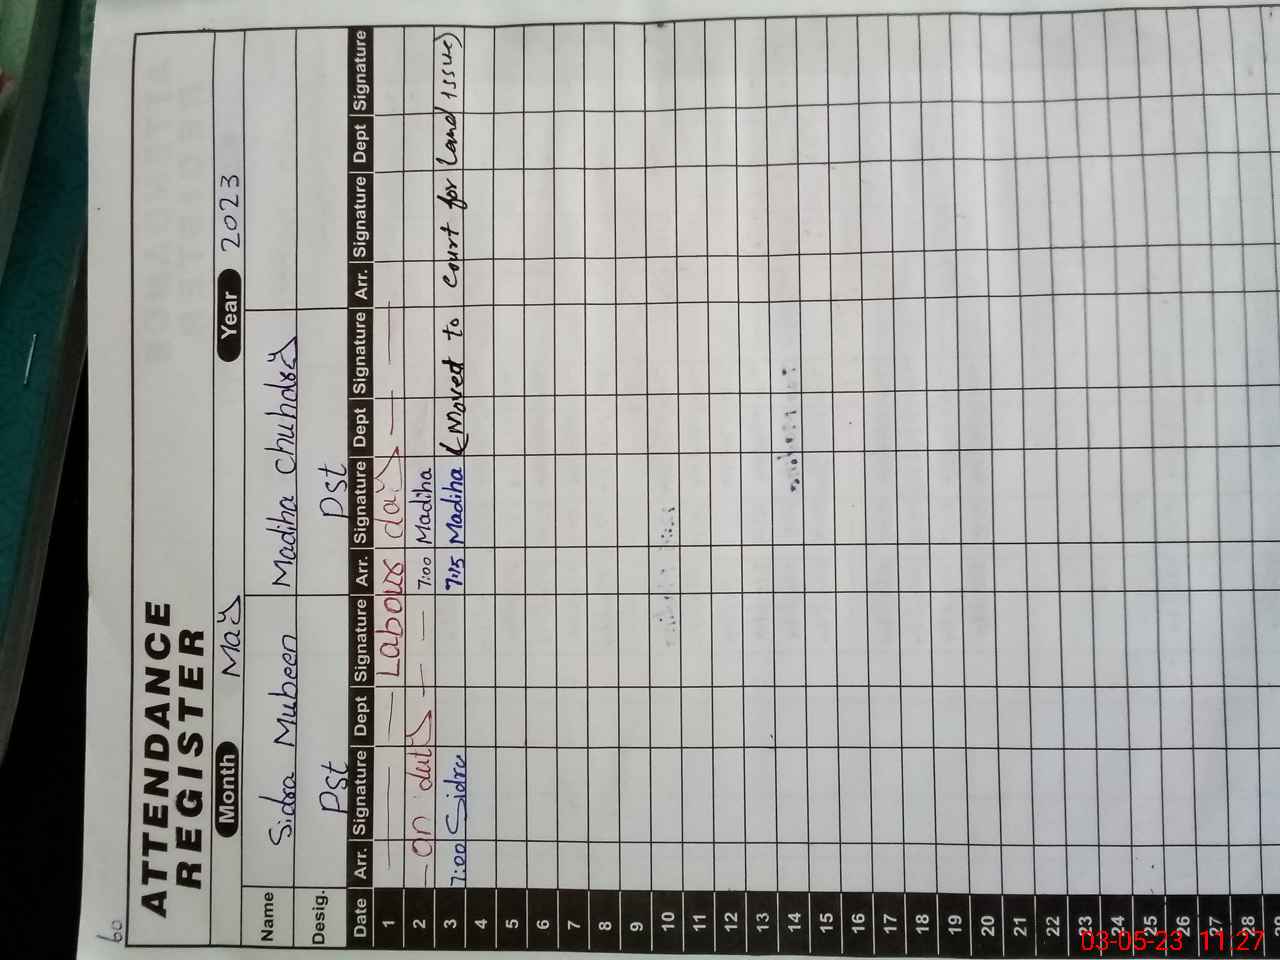 60
ATTENDANCE
REGISTER
Month May Year 2023
Name Sidra Mubeen Madiha Chuhdry
Desig. Pst Pst
Date Arr. Signature Dept Signature Arr. Signature Dept Signature Arr. Signature Dept Signature
1 Labour day
2 on duty 7:00 Madiha
3 7:00 Sidra 7:15 Madiha (Moved to court for land issue)
4
5
6
7
8
9
10
11
12
13
14
15
16
17
18
19
20
21
22
23
24
25
26
27
28
03-05-23 11:27